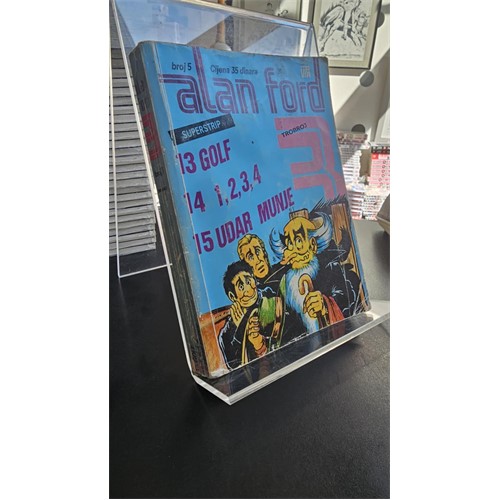 broj 5 Cijena 35 dinara
alan ford
SUPERSTRIP
TROBROJ
3
13 GOLF
14 1,2,3,4
15 UDAR MUNJE